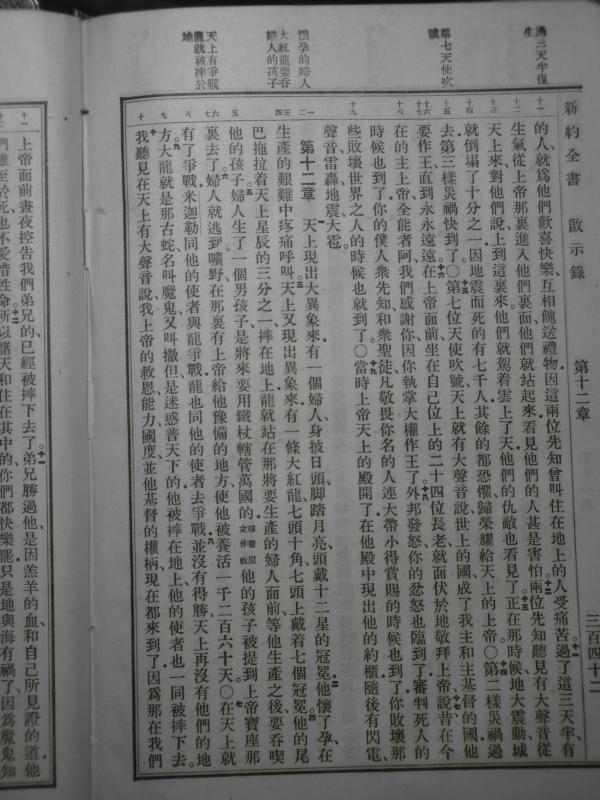 新約全書 啟示錄 第十二章 三百四十二
過三天半復
生
第七天使吹
號
懷孕的婦人
大紅龍要吞
婦人的孩子
天上有爭戰
龍就被摔於
地
的人、就爲他們歡喜快樂、互相餽送禮物、因這兩位先知曾叫住在地上的人受痛苦、過了這三天半、有
生氣從上帝那裏進入他們裏面、他們就站起來、看見他們的人甚是害怕、兩位先知聽見有大聲音從
天上來、對他們說、上到這裏來、他們就駕着雲上了天、他們的仇敵也看見了、正在那時候、地大震動、城
就倒塌了十分之一、因地震而死的有七千人、其餘的都恐懼、歸榮耀給天上的上帝〇第二樣災禍過
去、第三樣災禍快到了〇第七位天使吹號、天上就有大聲音說、世上的國成了我主和主基督的國、他
要作王、直到永永遠遠、在上帝面前、坐在自己位上的二十四位長老、就面伏於地、敬拜上帝、說、昔在今
在的主上帝全能者阿、我們感謝你、因你執掌大權作王了、外邦發怒、你的忿怒也臨到了、審判死人的
時候也到了、你的僕人衆先知、和衆聖徒、凡敬畏你名的人、連大帶小得賞賜的時候也到了、你敗壞那
些敗壞世界之人的時候也就到了〇當時上帝天上的殿開了、在他殿中現出他的約櫃、隨後有閃電、
聲音、雷轟、地震、大雹。
第十二章 天上現出大異象來、有一個婦人、身披日頭、脚踏月亮、頭戴十二星的冠冕、他懷了孕、在
生產的艱難中疼痛呼叫、天上又現出異象來、有一條大紅龍、七頭十角、七頭上戴着七個冠冕、他的尾
巴拖拉着天上星辰的三分之一、摔在地上、龍就站在那將要生產的婦人面前、等他生產之後、要吞喫
他的孩子、婦人生了一個男孩子、是將來要用鐵杖轄管萬國的、他的孩子被提到上帝寶座那
裏去了、婦人就逃到曠野、在那裏有上帝給他豫備的地方、使他被養活一千二百六十天〇在天上就
有了爭戰、米迦勒同他的使者與龍爭戰、龍也同他的使者去爭戰、並沒有得勝、天上再沒有他們的地
方、大龍就是那古蛇、名叫魔鬼、又叫撒但、是迷惑普天下的、他被摔在地上、他的使者也一同被摔下去。
我聽見在天上有大聲音說、我上帝的救恩、能力、國度、並他基督的權柄、現在都來到了、因爲那在我們
上帝面前晝夜控告我們弟兄的、已經被摔下去了、弟兄勝過他、是因羔羊的血、和自己所見證的道、他
們雖至於死、也不愛惜性命、所以諸天和住在其中的、你們都快樂罷、只是地與海有禍了、因爲魔鬼知